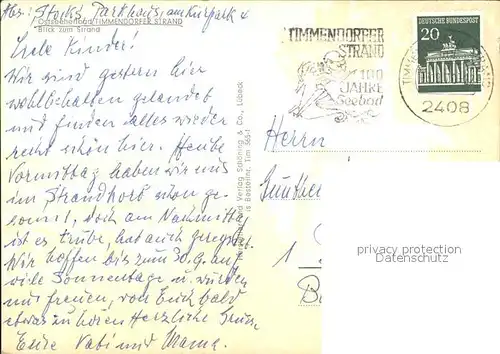 Abs.: Storks, Parkhaus, am Kurpark 4
Ostseeheilbad TIMMENDORFER STRAND
Blick zum Strand
Liebe Kinder!
Wir sind gestern hier
wohlbehalten gelandet
und finden alles wieder
recht schön hier. Heute
Vormittag haben wir uns
im Strandkorb schon ge-
sonnt, doch am Nachmittag
ist es trübe, hat auch geregnet.
Wir hoffen bis zum 30. auf
viele Sonnentage u. würden
uns freuen, von Euch bald
etwas zu hören. Herzliche Grüße
Eure Vati und Mama.
Verlag Schöning & Co., Lübeck
Bestellnr. Tim 365-1
TIMMENDORFER
STRAND
100
JAHRE
Seebad
DEUTSCHE BUNDESPOST
20
2408
Herrn
Günther
1
privacy protection
Datenschutz